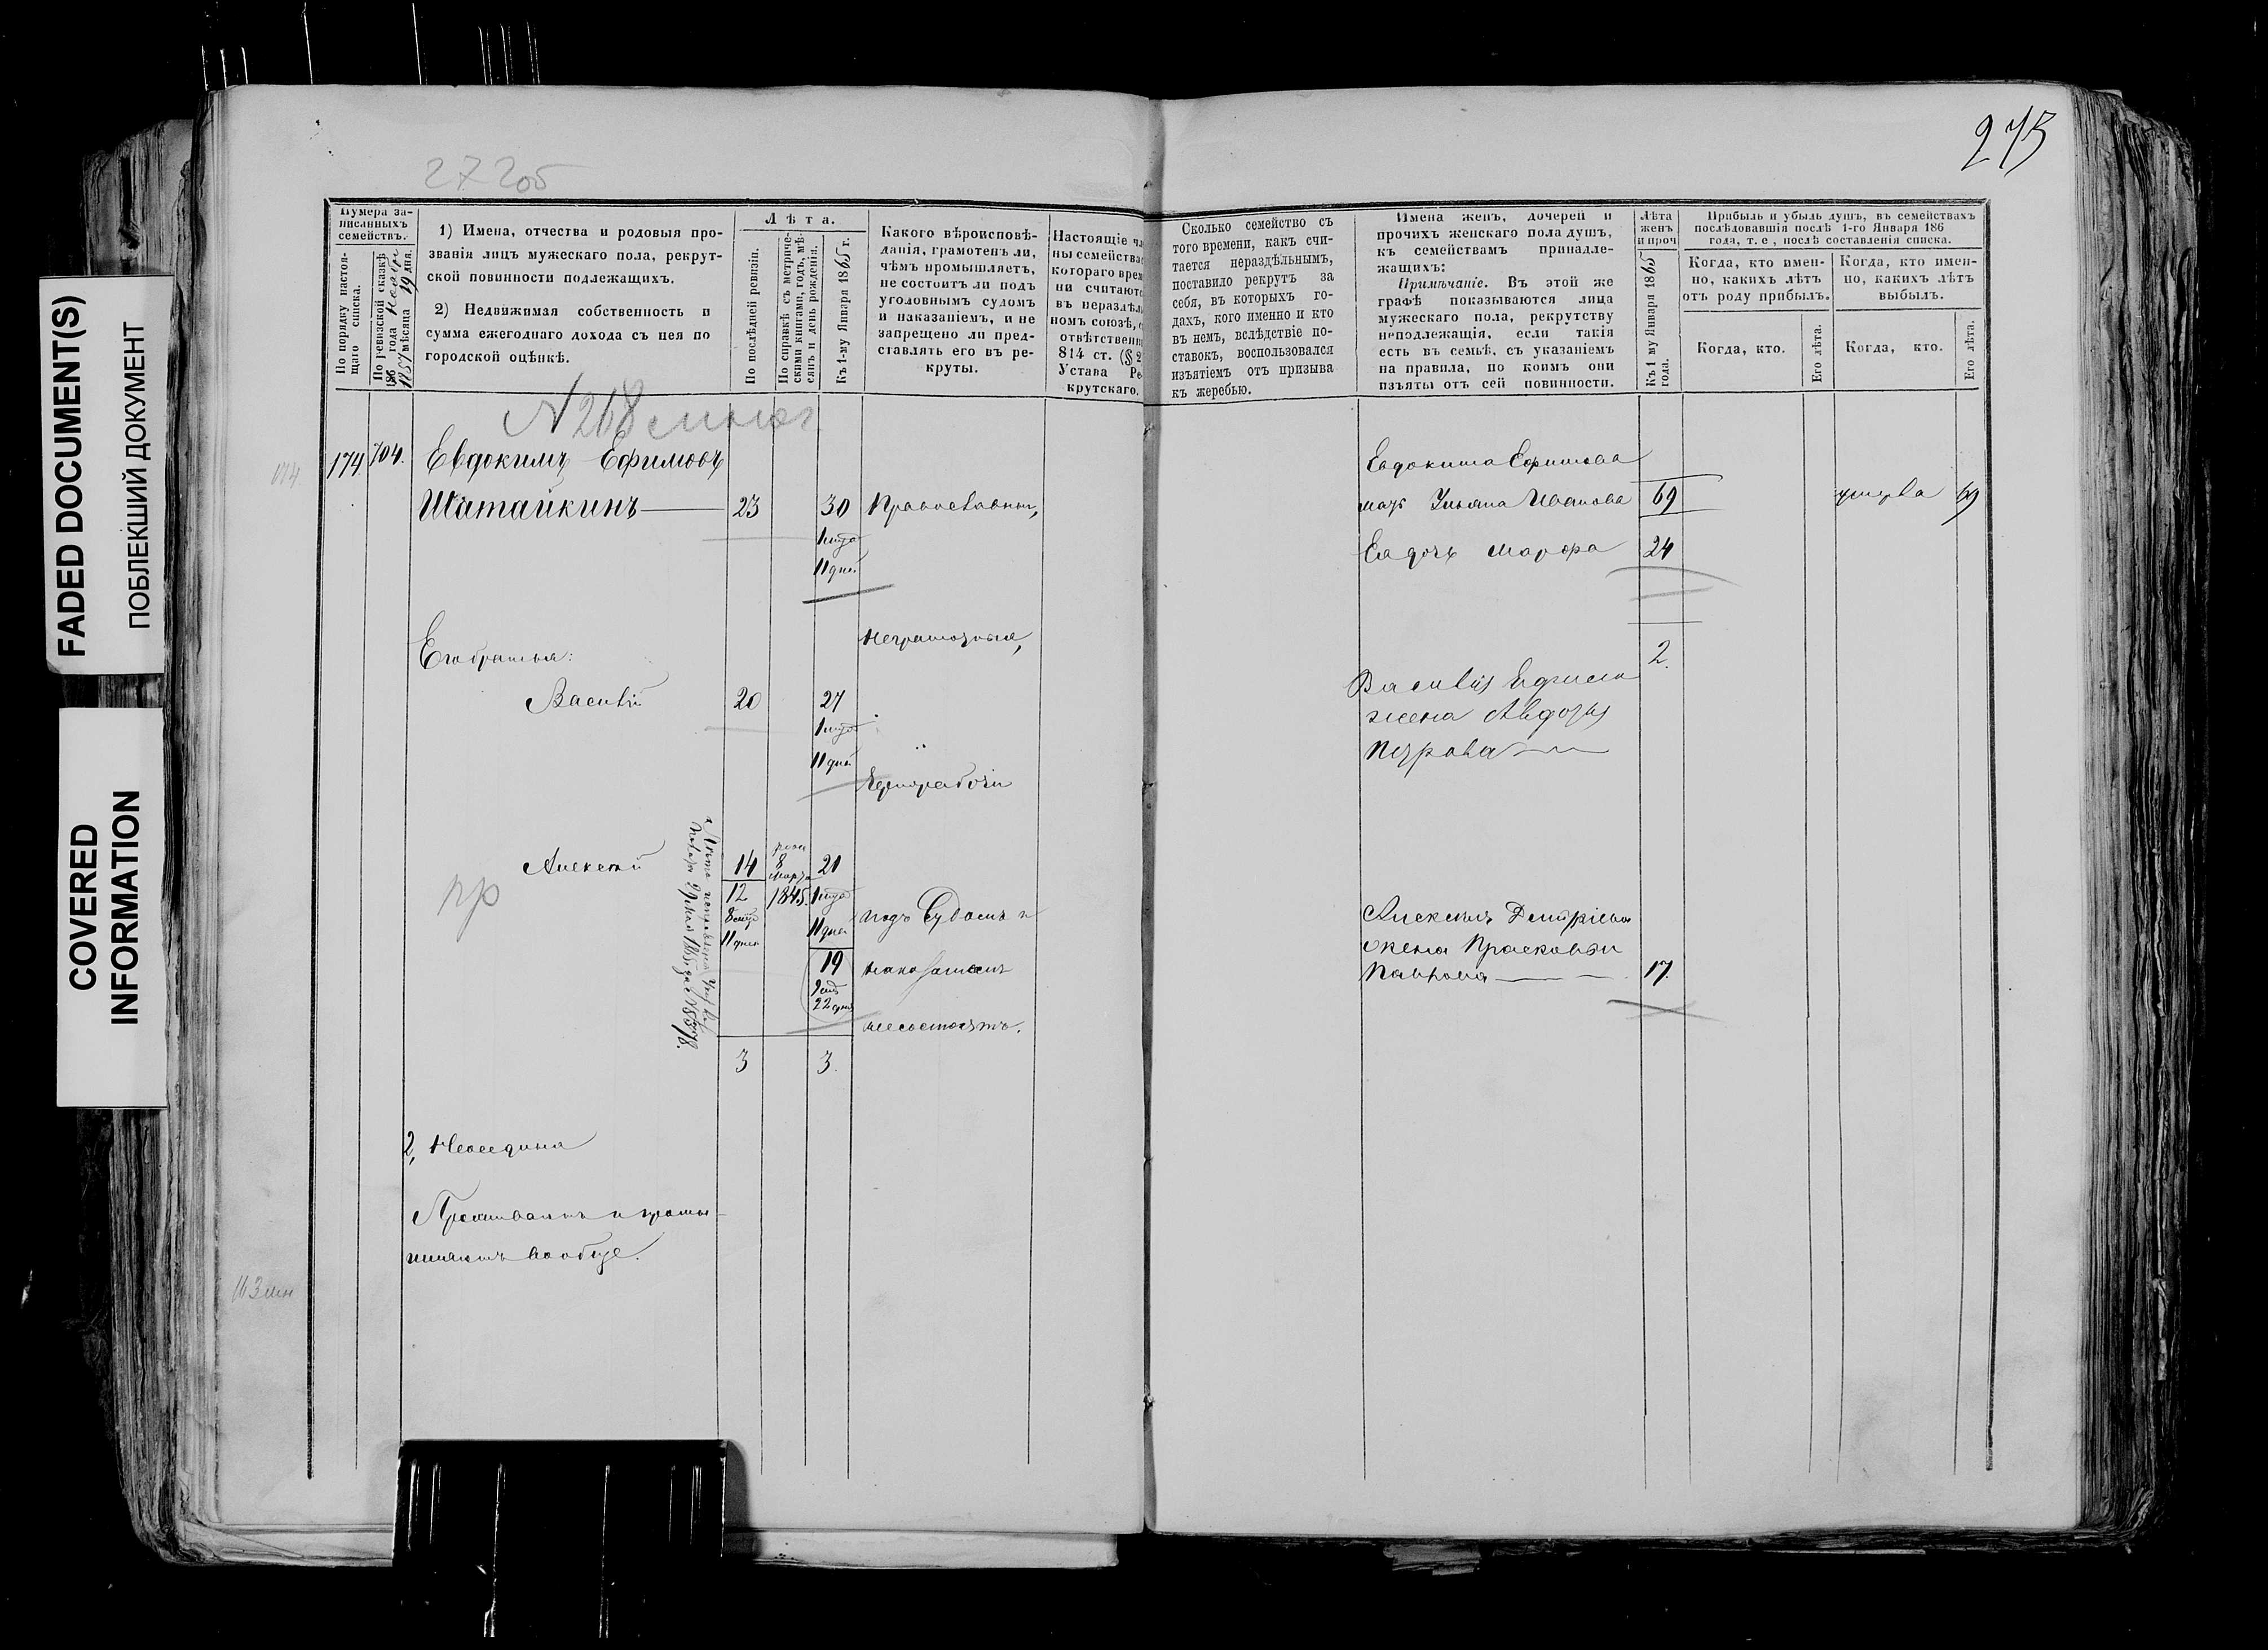 FADED DOCUMENT(S)
ПОБЛЕКШИЙ ДОКУМЕНТ
COVERED
INFORMATION
272об
273
Нумера за-
писанныхъ
семействъ.
По порядку настоя-
щаго списка.
По ревизской сказкѣ
186 года
1857 мѣсяца 19 дня.
1) Имена, отчества и родовыя про-
званія лицъ мужескаго пола, рекрут-
ской повинности подлежащихъ.
2) Недвижимая собственность и
сумма ежегоднаго дохода съ нея по
городской оцѣнкѣ.
Лѣта.
По послѣдней ревизіи.
По справкѣ съ метриче-
скими книгами, годъ, мѣ-
сяцъ и день рожденія.
Къ 1-му Января 1865 г.
Какого вѣроисповѣ-
данія, грамотенъ ли,
чѣмъ промышляетъ,
не состоитъ ли подъ
уголовнымъ судомъ
и наказаніемъ, и не
запрещено ли пред-
ставлять его въ ре-
круты.
Настоящіе чл
ны семейства
котораго врем
ни считают
въ нераздѣл
номъ союзѣ, с
отвѣтствен
814 ст. (§ 2
Устава Ре
крутскаго.
Сколько семейство съ
того времени, какъ счи-
тается нераздѣльнымъ,
поставило рекрутъ за
себя, въ которыхъ го-
дахъ, кого именно и кто
въ немъ, вслѣдствіе по-
ставокъ, воспользовался
изъятіемъ отъ призыва
къ жеребью.
Имена женъ, дочерей и
прочихъ женскаго пола душъ,
къ семействамъ принадле-
жащихъ:
Примѣчаніе. Въ этой же
графѣ показываются лица
мужескаго пола, рекрутству
неподлежащія, если такія
есть въ семьѣ, съ указаніемъ
на правила, по коимъ они
изъяты отъ сей повинности.
Лѣта
женъ
и проч
Къ 1 му Января 1865
года.
Прибыль и убыль душъ, въ семействахъ
послѣдовавшія послѣ 1-го Января 186
года, т. е, послѣ составленія списка.
Когда, кто имен-
но, какихъ лѣтъ
отъ роду прибылъ.
Когда, кто имен-
но, какихъ лѣтъ
выбылъ.
Когда, кто.
Его лѣта.
Когда, кто.
Его лѣта.
N 268
174
174. 704. Евдокимъ Ефимовъ
Шатайкинъ 23 30 Православны,
11 дней
Неграмотныя,
Его братья:
Василій 20 27
11 дней
Чернорабочіи
Алексѣй 14 8 Марта 1845. 21
пр
12
11 дней
11 дней
19
22 дня
подъ Судомъ и
наказаніемъ
несостоятъ.
3 3.
2, Неоседлыя
Проживаютъ и промы-
шляютъ вообще.
Евдокима Ефимова
мать Ульяна Иванова 69 умерла 69
Ея дочь Марфа 24
2.
Василія Ефимова
жена Авдотья
Петрова
Алексѣя Дмитріева
жена Прасковья
Павлова 17.